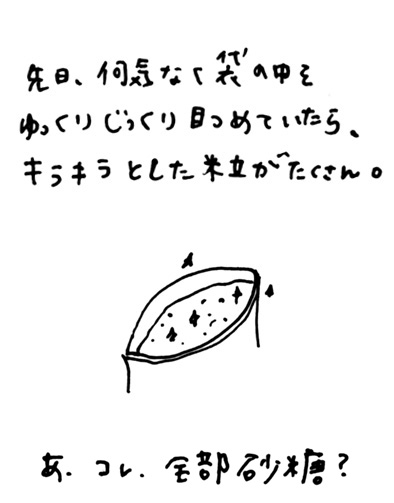 先日、何気なく袋の中を
ゆっくりじっくり見つめていたら、
キラキラとした粒がたくさん。
あ、コレ、全部砂糖？